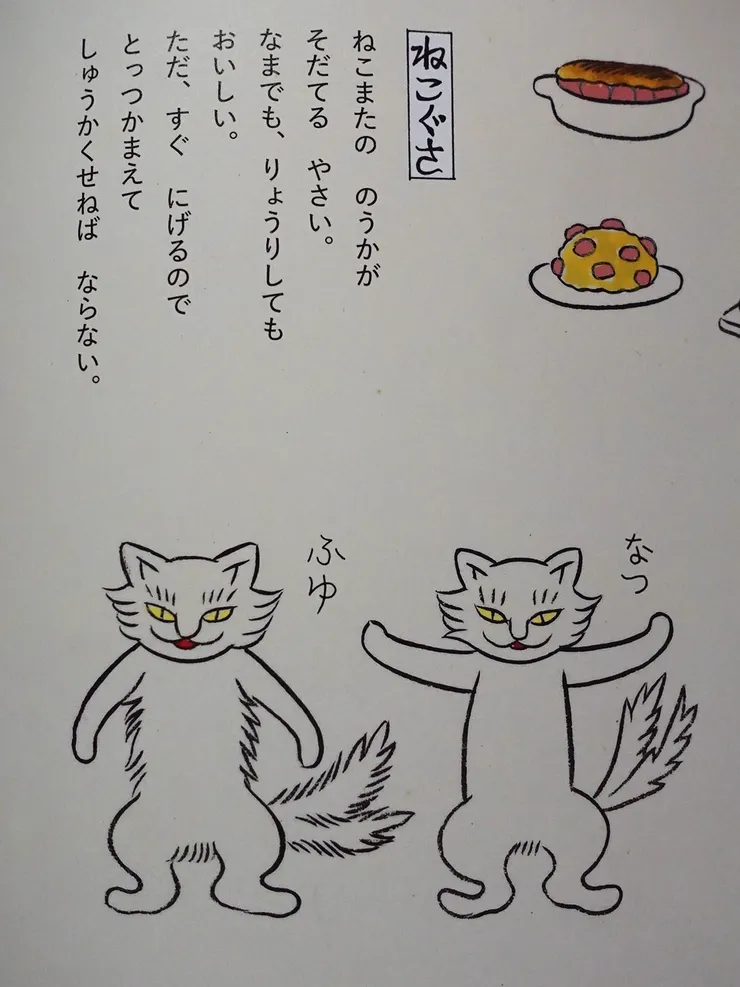 ねこぐさ
ねこまたの のうかが
そだてる やさい。
なまでも、りょうりしても
おいしい。
ただ、すぐ にげるので
とっつかまえて
しゅうかくせねば ならない。
なつ
ふゆ